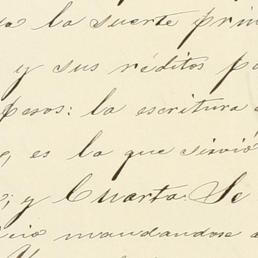 la suerte prin
y sus réditos pa
pesos: la escritura
es la que sirvió
y Cuarta. Se
mandandose a